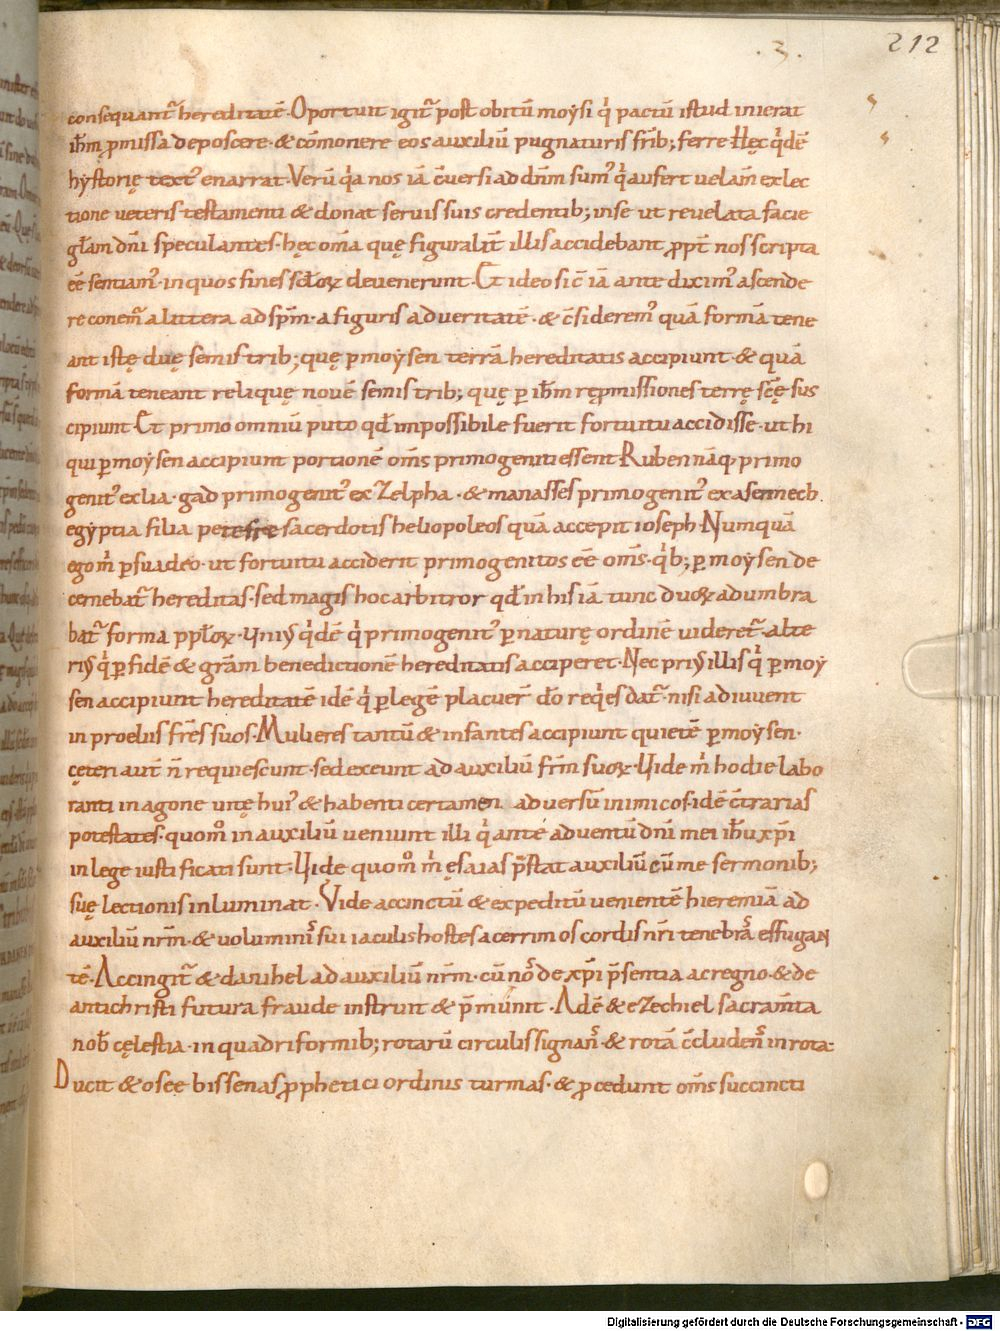 .3. 212
consequant᷑ hereditatē. Oportuit igit᷑ post obitū moẏsi q̇ pactū istud inierat
ih̄m ꝓmissa deposcere. & cōmonere eos auxiliū pugnaturis fr̄ib; ferre. Hęc q̇dē
hẏstorię text᷒ enarrat. Verū q̇a nos iā c̄uersi ad dn̄m sum᷒ q̇ aufert uelam̄ ex lec
tione ueteris testamenti & donat seruis suis credentib; in se ut reuelata facie
gl̄am dn̄i speculantes. hęc om̄a quę figuralit᷑ illis accidebant ꝓpt᷑ nos scripta
eē sentiam᷒. in quos fines sc̄loꝝ deuenerunt. Et ideo sic̄ iā ante dixim᷒ ascende
re conem᷑ a littera ad sp̄m. a figuris ad ueritatē. & c̄siderem᷒ quā formā tene
ant istę duę semis trib; quę ꝑ moẏsen terrā hereditatis accipiunt. & quā
formā teneant reliquę nouē semis trib; quę ꝑ ih̄m reꝓmissiones terrę sc̄ę sus
cipiunt. Et primo omniū puto qđ impossibile fuerit fortuitu accidisse. ut hi
qui ꝑ moẏsen accipiunt portionē om̄s primogeniti essent. Ruben nāq; primo
genit᷒ ex lia. gad primogenit᷒ ex Zelpha. & manasses primogenit᷒ ex asennech.
egẏptia filia petefre sacerdotis heliopoleos quā accepit ioseph. Numquā
ego m̄ ꝑsuadeo. ut fortuitu acciderit primogenitos eē om̄s. q̇b; ꝑ moẏsen de
cernebat᷑ hereditas. sed magis hoc arbitror qđ in his iā tunc duoꝝ adumbra
bat᷑ forma pploꝝ. Uni᷒ q̇dē q̇ primogenit᷒ ꝑ naturę ordinē uideret᷑. alte
ri᷒ q̇ ꝑ fidē & gr̄am benedictionē hereditatis acciperet. Nec pri᷒ illis q̇ ꝑ moẏ
sen accipiunt hereditatē idē q̇ ꝑ legē placuer̄ dō req̇es dat᷑. nisi adiuuent
in proeliis fr̄es suos. Mulieres tantū & infantes accipiunt quietē ꝑ moẏsen.
cęteri aut̄ n̄ requiescunt. sed exeunt ad auxiliū fr̄m suoꝝ. Uide m̄ hodie labo
ranti in agone uitę hui᷒ & habenti certamen aduersū inimicos. idē c̄trarias
potestates. quom̊ in auxiliū ueniunt illi q̇ ante aduentū dn̄i mei ih̄u xp̄i
in lege iustificati sunt. Uide quom̊ m̄ ęsaias p̄stat auxiliū. cū me sermonib;
suę lectionis inluminat. Vide accinctū & expeditū uenientē hieremiā ad
auxiliū nr̄m. & uolumin᷒ sui iaculis hostes acerrimos cordis nr̄i tenebras effugan
tē. Accingit᷑ & danihel ad auxiliū nr̄m. cū nos de xp̄i p̄sentia ac regno. & de
antichristi futura fraude instruit & p̄munit. Adē & eZechiel sacram̄ta
nob̄ cęlestia. in quadriformib; rotarū circulis signans. & rotā c̄cludens in rota.
Ducit & osee bis senas ꝓphetici ordinis turmas. & ꝓcedunt om̄s succincti
Digitalisierung gefördert durch die Deutsche Forschungsgemeinschaft - DFG